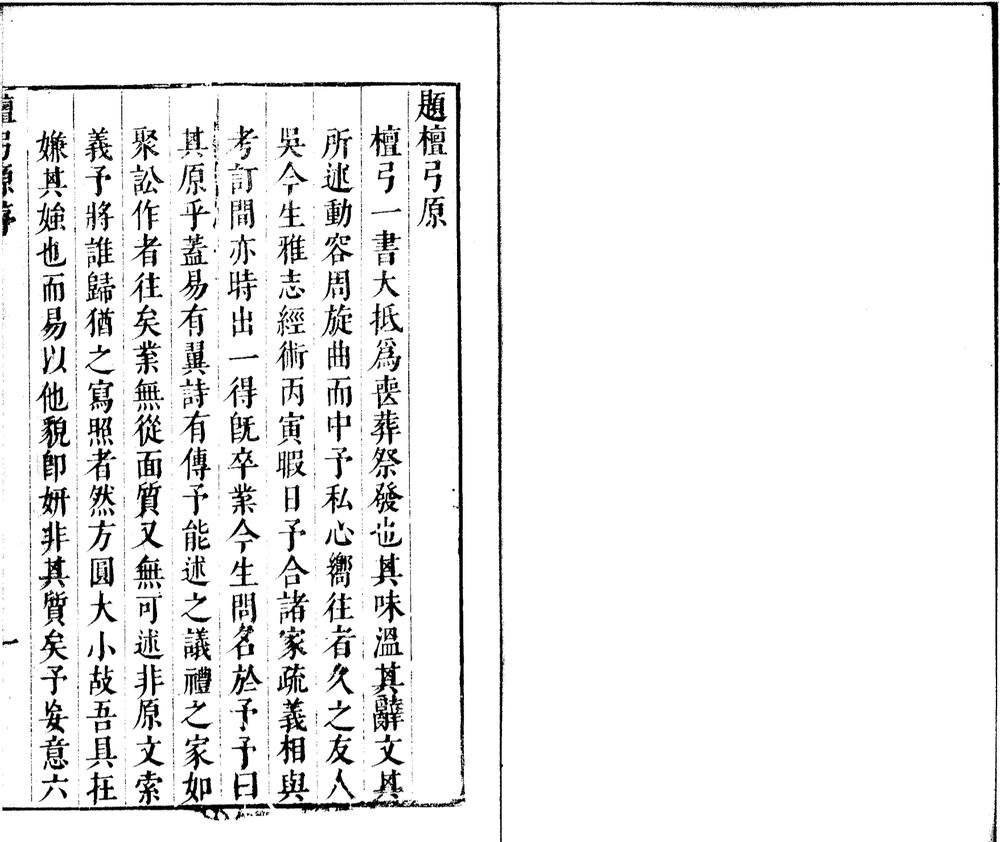 題檀弓原
檀弓一書大抵爲喪葬祭發也其味溫其辭文其
所述動容周旋曲而中予私心嚮往者久之友人
吳今生雅志經術丙寅暇日予合諸家疏義相與
考訂間亦時出一得旣卒業今生問名於予予曰
其原乎蓋易有翼詩有傳予能述之議禮之家如
聚訟作者往矣業無從面質又無可述非原文索
義予將誰歸猶之寫照者然方圓大小故吾具在
嫌其媸也而易以他貌卽妍非其質矣予妄意六
檀弓原
一